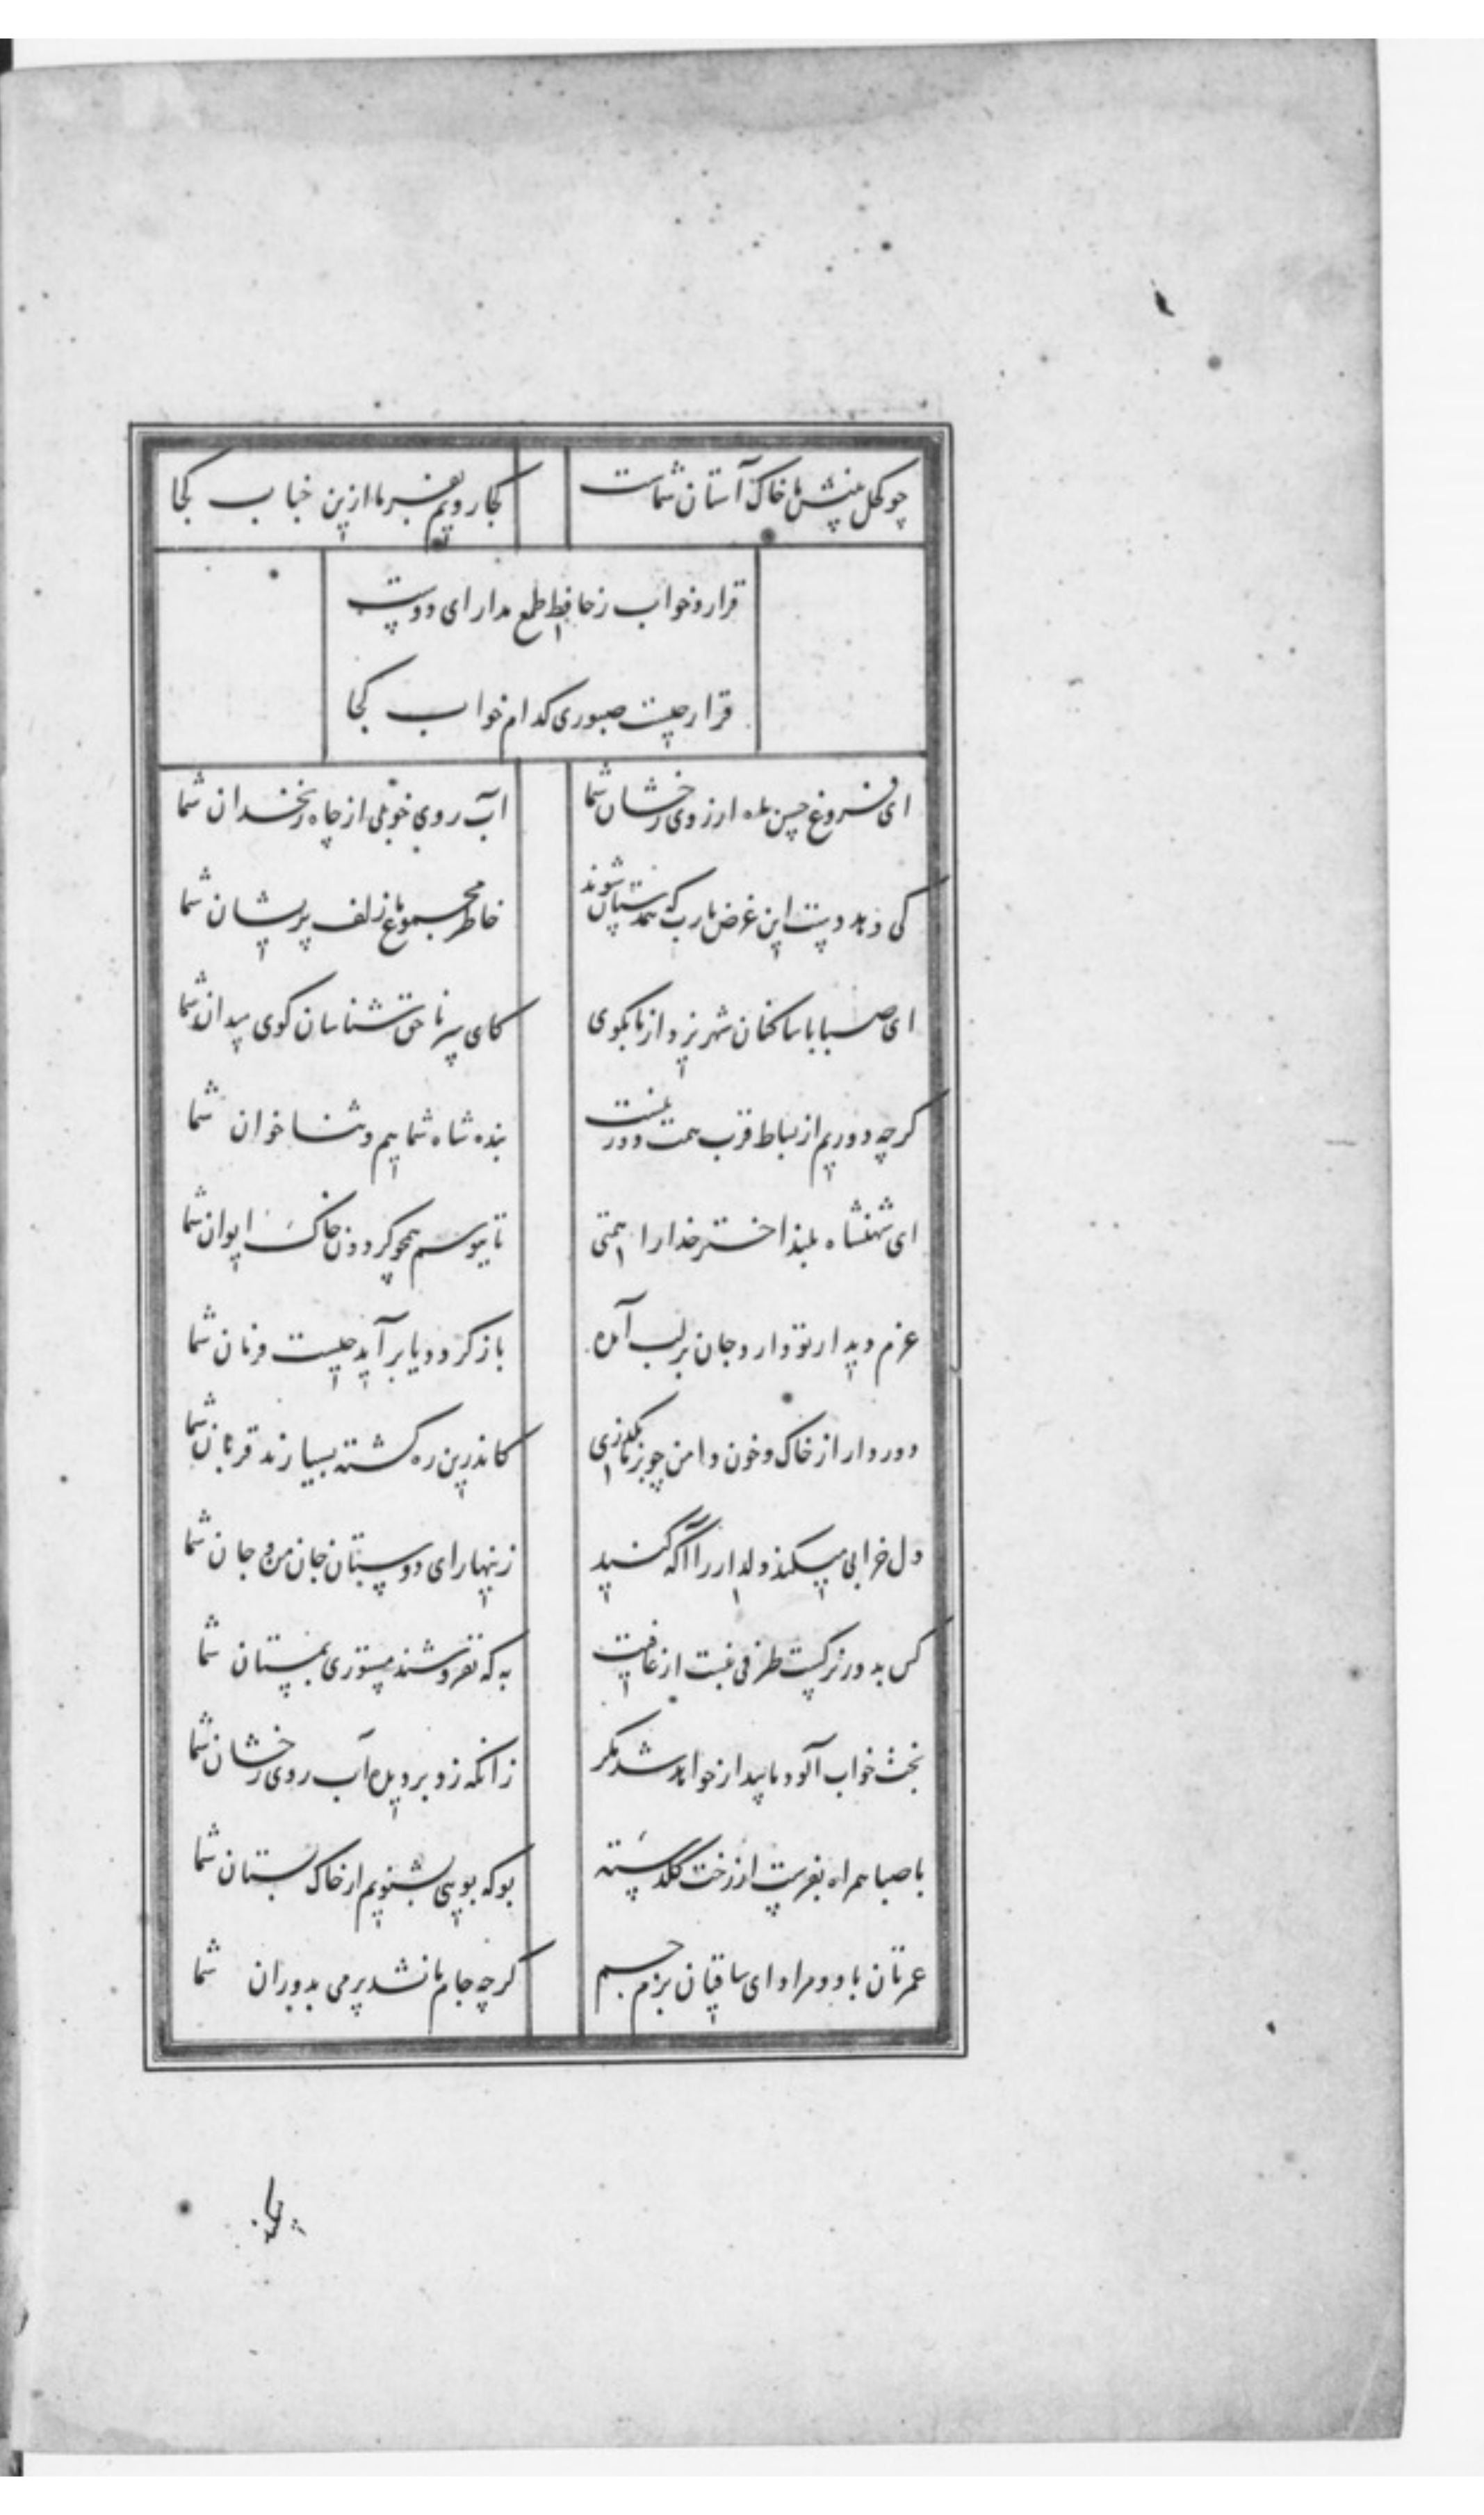 چو کحل بینش ما خاک آستان شماست کجا رویم بفرما ازین جناب کجا
قرار و خواب ز حافظ طمع مدار ای دوست
قرار چیست صبوری کدام خواب کجا
ای فروغ حسن ماه از روی رخشان شما آب روی خوبی از چاه زنخدان شما
کی دهد دست این غرض یارب که همدستان شوند خاطر مجموع ما زلف پریشان شما
ای صبا با ساکنان شهر یزد از ما بگوی کای سر ناحق شناسان کوی میدان شما
گرچه دوریم از بساط قرب همت دور نیست بنده شاه شماییم و ثناخوان شما
ای شهنشاه بلند اختر خدا را همتی تا ببوسم همچو گردون خاک ایوان شما
عزم دیدار تو دارد جان بر لب آمده باز گردد یا بر آید چیست فرمان شما
دور دار از خاک و خون دامن چو بر ما بگذری کاندرین ره کشته بسیارند قربان شما
دل خرابی میکند دلدار را آگه کنید زینهار ای دوستان جان من و جان شما
کس بدور نرگست طرفی نبست از عافیت به که نفروشند مستوری بمستان شما
بخت خواب آلود ما بیدار خواهد شد مگر زانکه زد بر دیده آب روی رخشان شما
با صبا همراه بفرست از رخت گلدسته بو که بویی بشنویم از خاک بستان شما
عمرتان باد و مراد ای ساقیان بزم جم گرچه جام ما نشد پر می بدوران شما